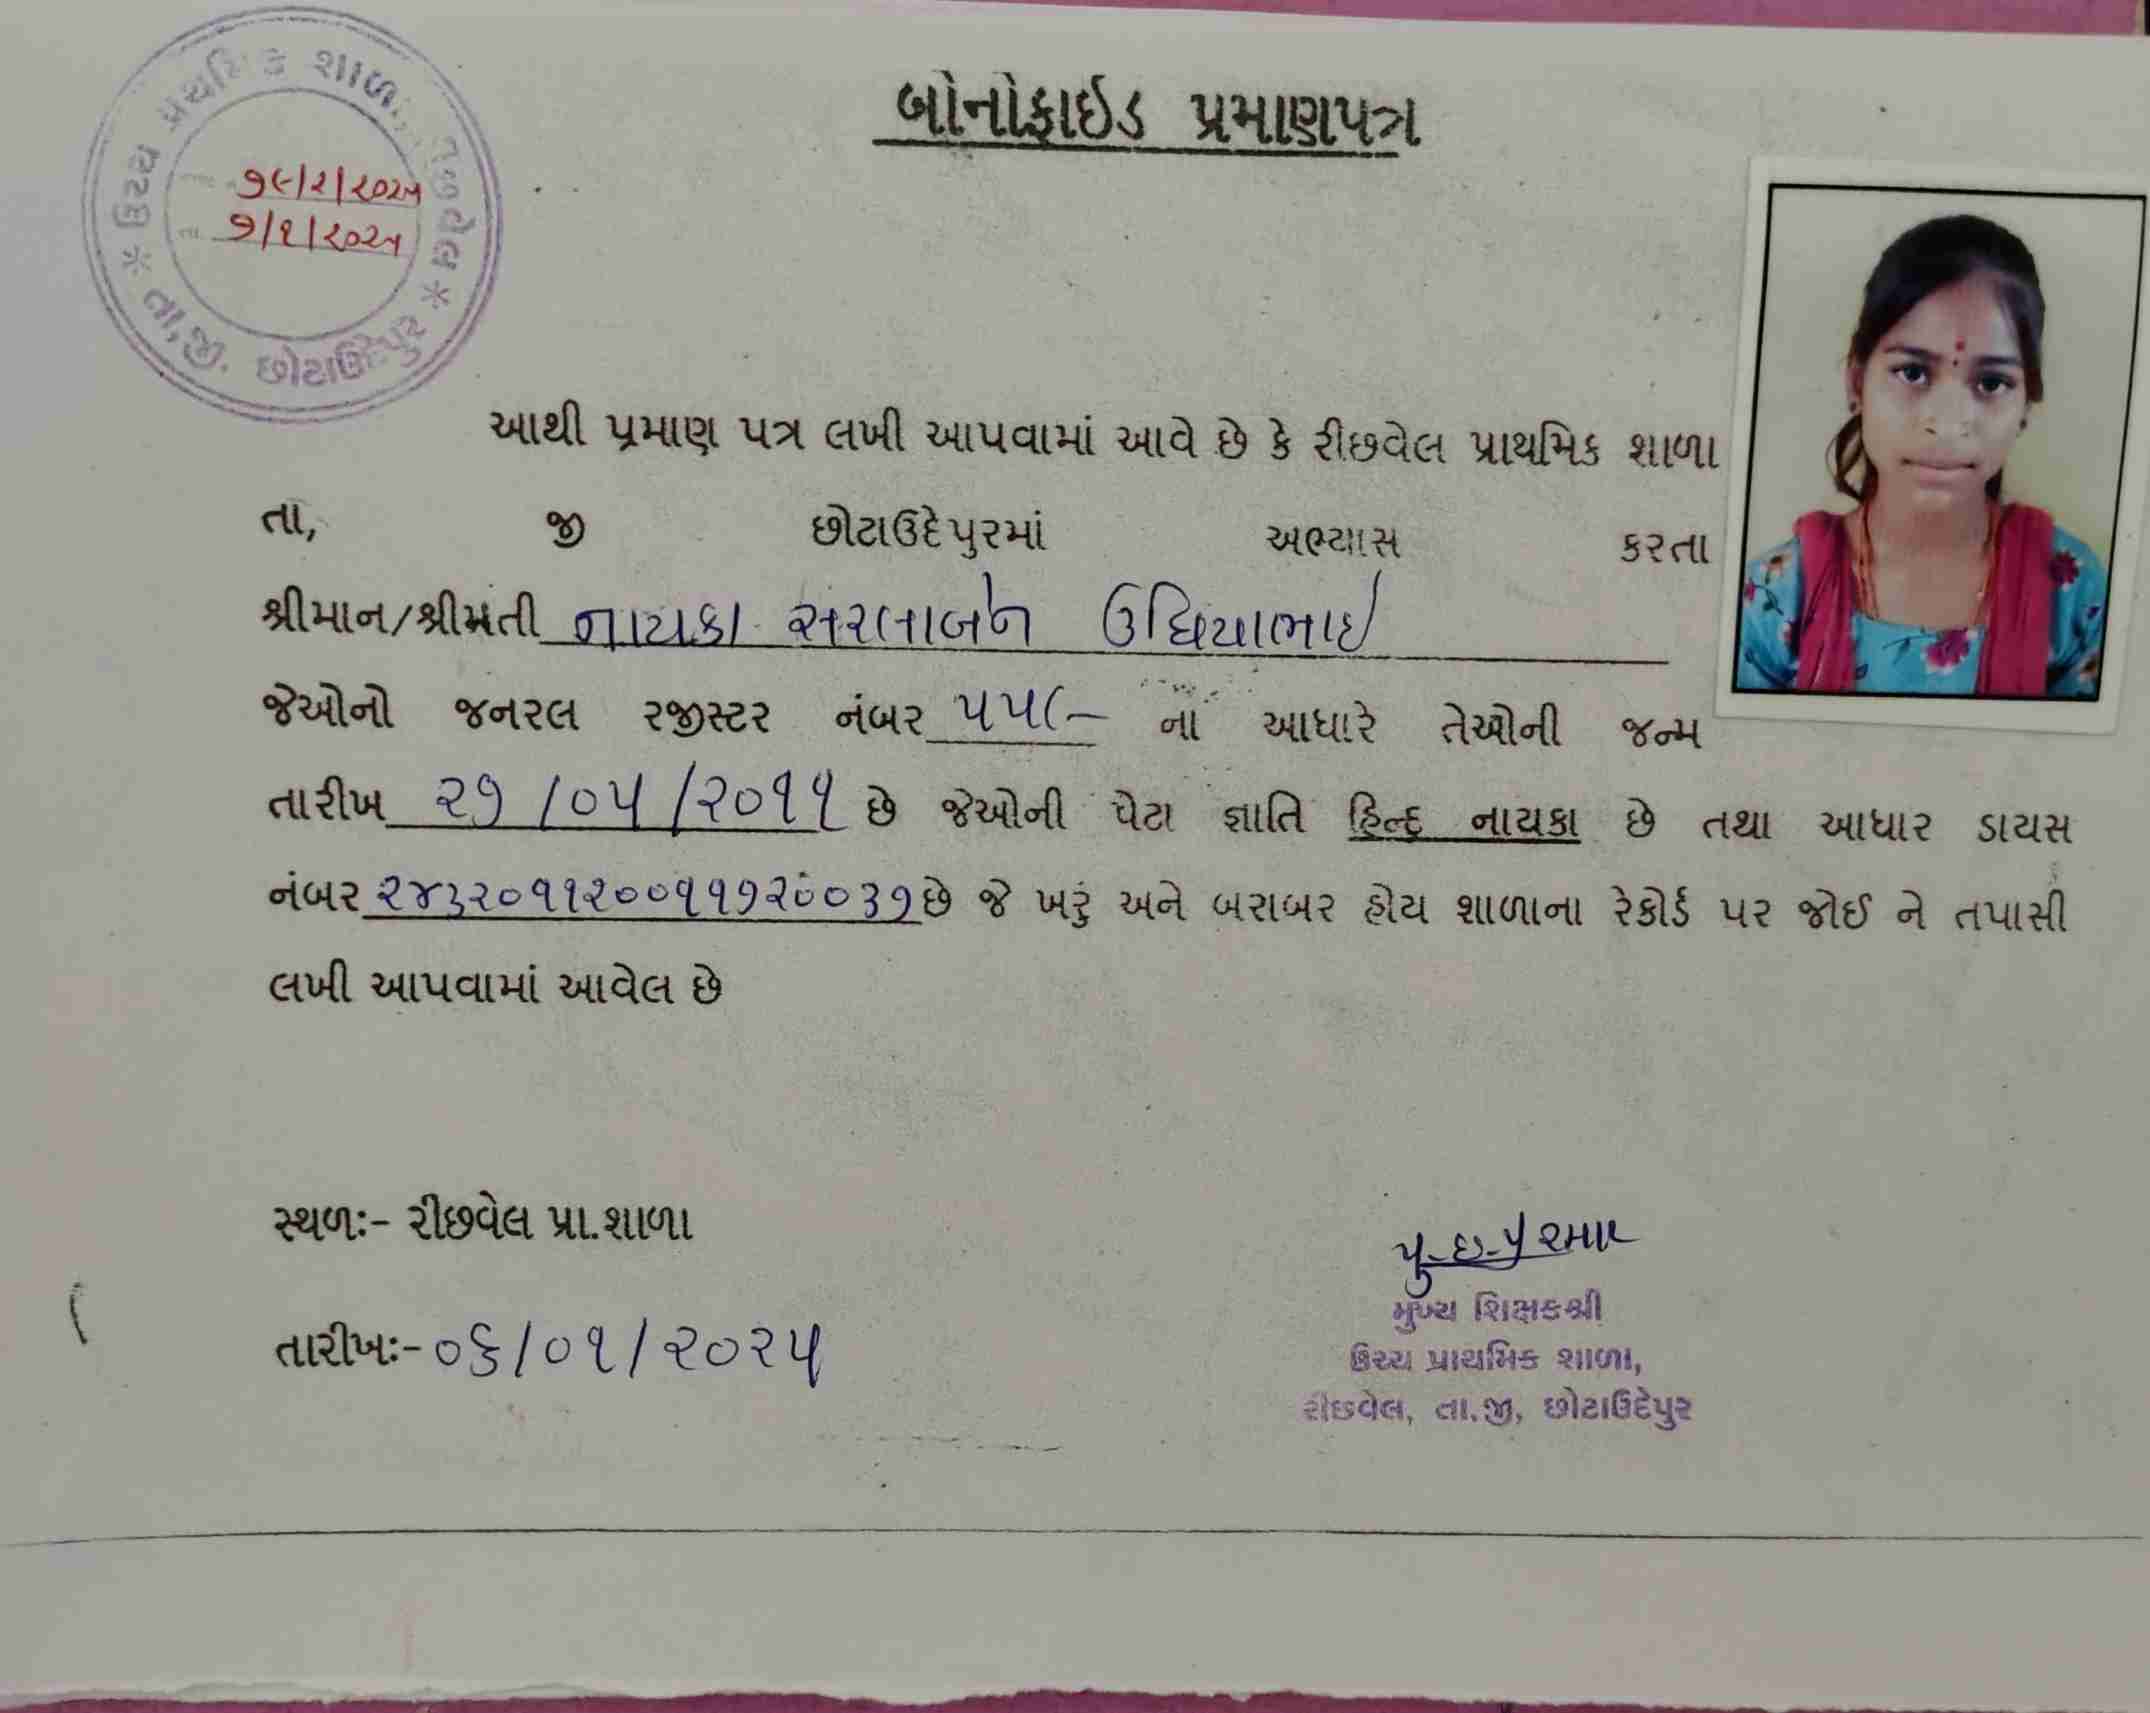 બોનોફાઇડ પ્રમાણપત્ર
ઉચ્ચ પ્રાથમિક શાળા
તા,જી. છોટાઉદેપુર
૭/૧/૨૦૨૫
આથી પ્રમાણ પત્ર લખી આપવામાં આવે છે કે રીછવેલ પ્રાથમિક શાળા
તા, જી છોટાઉદેપુરમાં અભ્યાસ કરતા
શ્રીમાન/શ્રીમતી નાયકા સરલાબેન ઉધિયાભાઇ
જેઓનો જનરલ રજીસ્ટર નંબર ૫૫૯ નાં આધારે તેઓની જન્મ
તારીખ ૨૭/૦૫/૨૦૧૧ છે જેઓની પેટા જ્ઞાતિ હિન્દુ નાયકા છે તથા આધાર ડાયસ
નંબર ૨૪૩૨૦૧૧૨૦૦૧૧૭૨૦૦૩૭ છે જે ખરું અને બરાબર હોય શાળાના રેકોર્ડ પર જોઈ ને તપાસી
લખી આપવામાં આવેલ છે
સ્થળઃ- રીછવેલ પ્રા.શાળા
તારીખઃ- ૦૬/૦૧/૨૦૨૫
મુખ્ય શિક્ષકશ્રી
ઉચ્ચ પ્રાથમિક શાળા,
રીછવેલ, તા.જી, છોટાઉદેપુર